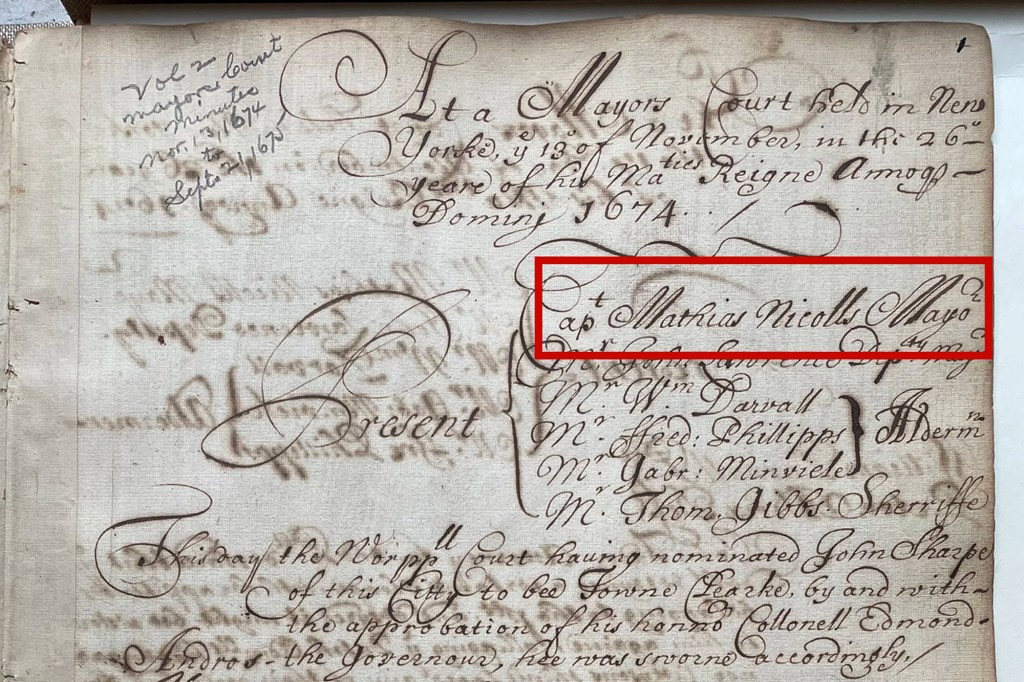 1
Vol 2
mayors Court
Minutes
Nov. 13, 1674
to
Sept. 21, 1675
At a Mayors Court held in New
Yorke, yͤ 13º of November, in the 26º
yeare of his Maᵗⁱᵉˢ Reigne Annoq
Dominj 1674
Present
Capᵗ Mathias Nicolls Mayoʳ
Mʳ John Lawrence Depᵗʸ Mayʳ
Mʳ Wᵐ Darvall
Mʳ ffred: Phillipps
Mʳ Gabr: Minviele
Aldermⁿ
Mʳ Thom. Gibbs. Sherriffe
This day the Worppˡˡ Court having nominated John Sharpe
of this Citty to bee Towne Clearke, by and with
the approbation of his honnoʳ Collonell Edmond
Andros the Governour, hee was sworne accordingly